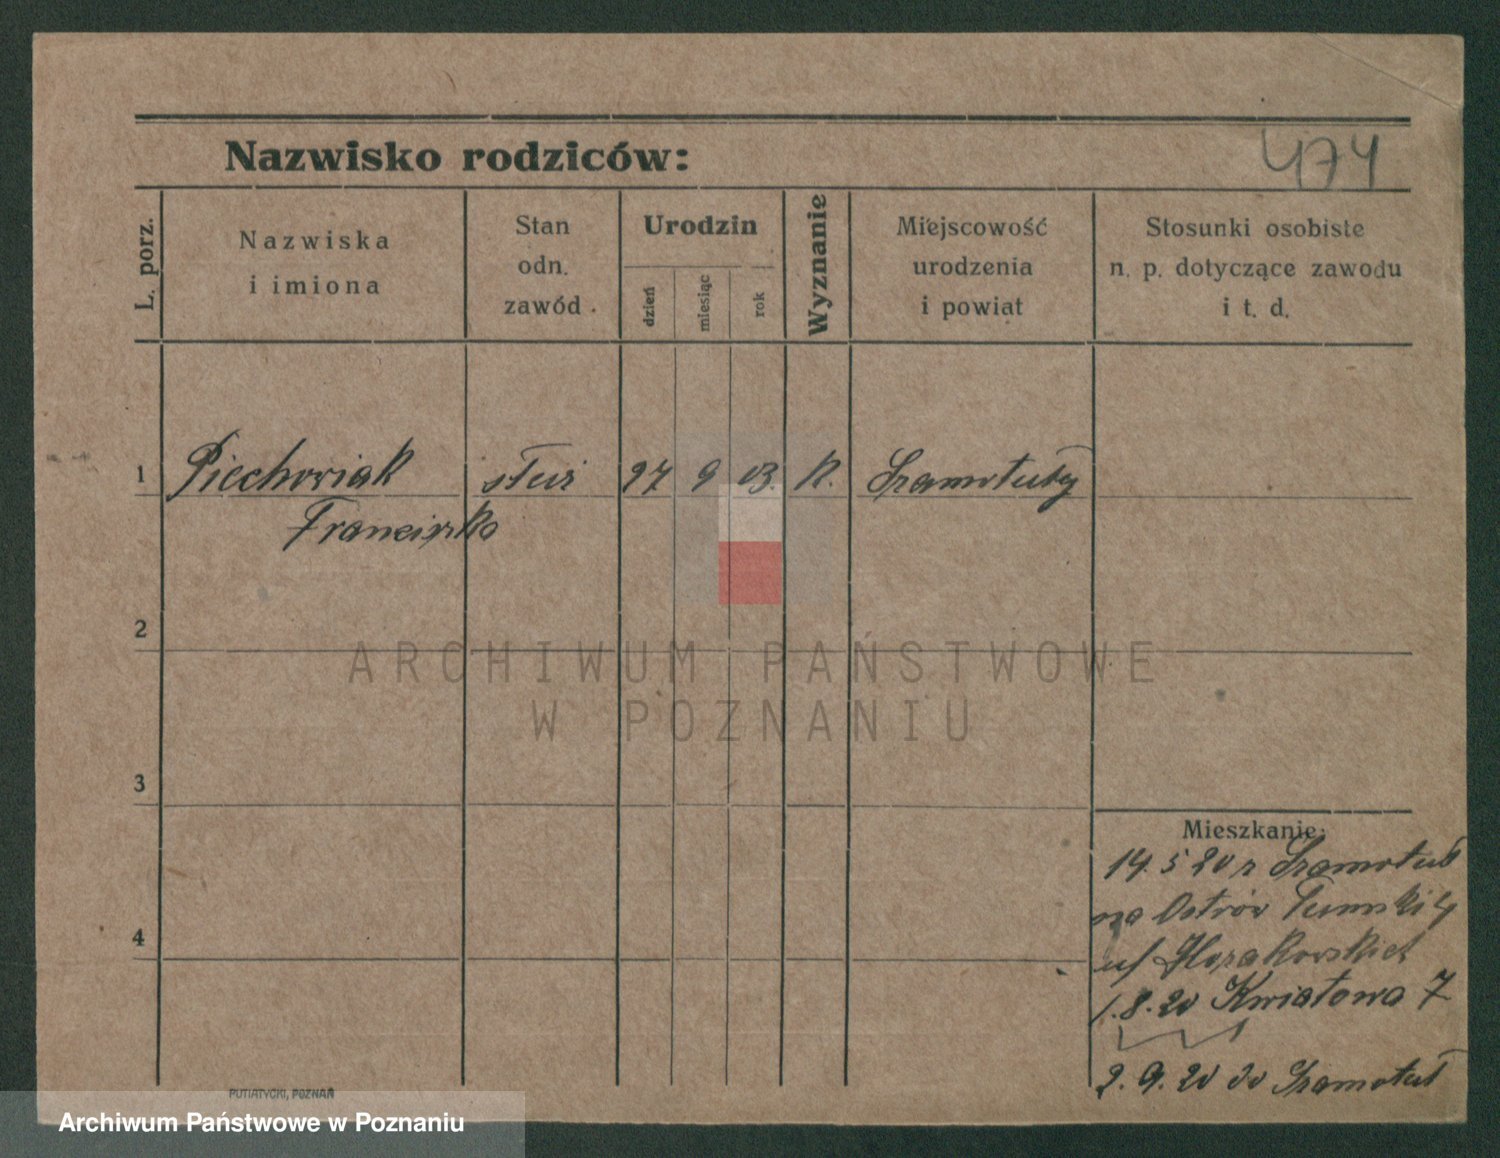 Nazwisko rodziców:
474
L. porz.
Nazwiska
i imiona
Stan
odn.
zawód
Urodzin
dzień
miesiąc
rok
Wyznanie
Miejscowość
urodzenia
i powiat
Stosunki osobiste
n. p. dotyczące zawodu
i t. d.
1 Piechowiak służ 27 9 03. K. Szamotuły
Franciszka
2
ARCHIWUM PAŃSTWOWE
W POZNANIU
3
Mieszkanie:
14.5 20 z Szamotuł
na Ostrów Tumski 4
u/
4
1.8.20 Kwiatowa 7
2.9.20 do Szamotuł
PUTIATYCKI, POZNAŃ
Archiwum Państwowe w Poznaniu